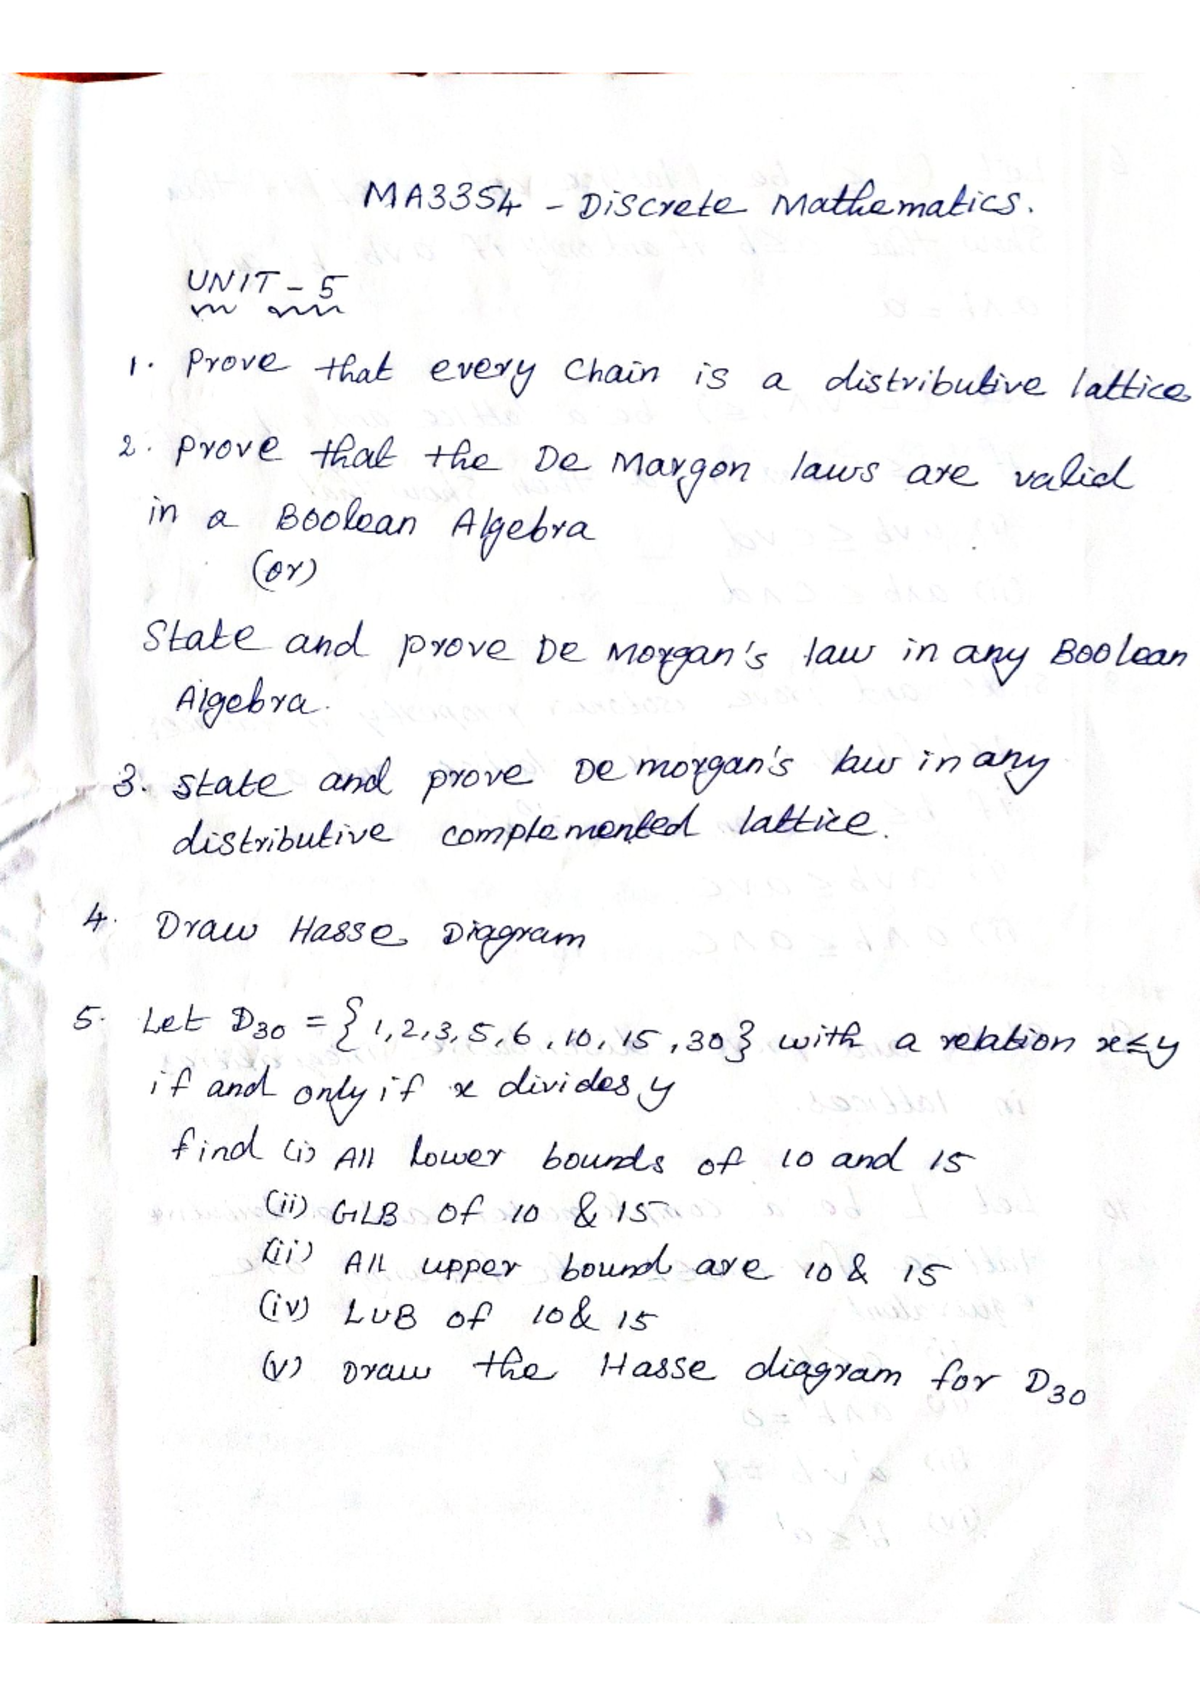 MA3354 - Discrete Mathematics.
UNIT - 5
1. Prove that every Chain is a distributive lattice
2. Prove that the De Margon laws are valid
in a Boolean Algebra
(or)
State and prove De Morgan's law in any Boolean
Algebra.
3. State and prove De morgan's law in any
distributive complemented lattice.
4. Draw Hasse Diagram
5. Let D30 = {1,2,3,5,6,10,15,30} with a relation x≤y
if and only if x divides y
find (i) All Lower bounds of 10 and 15
(ii) GLB of 10 & 15
(ii) All upper bound are 10 & 15
(iv) LUB of 10 & 15
(v) Draw the Hasse diagram for D30